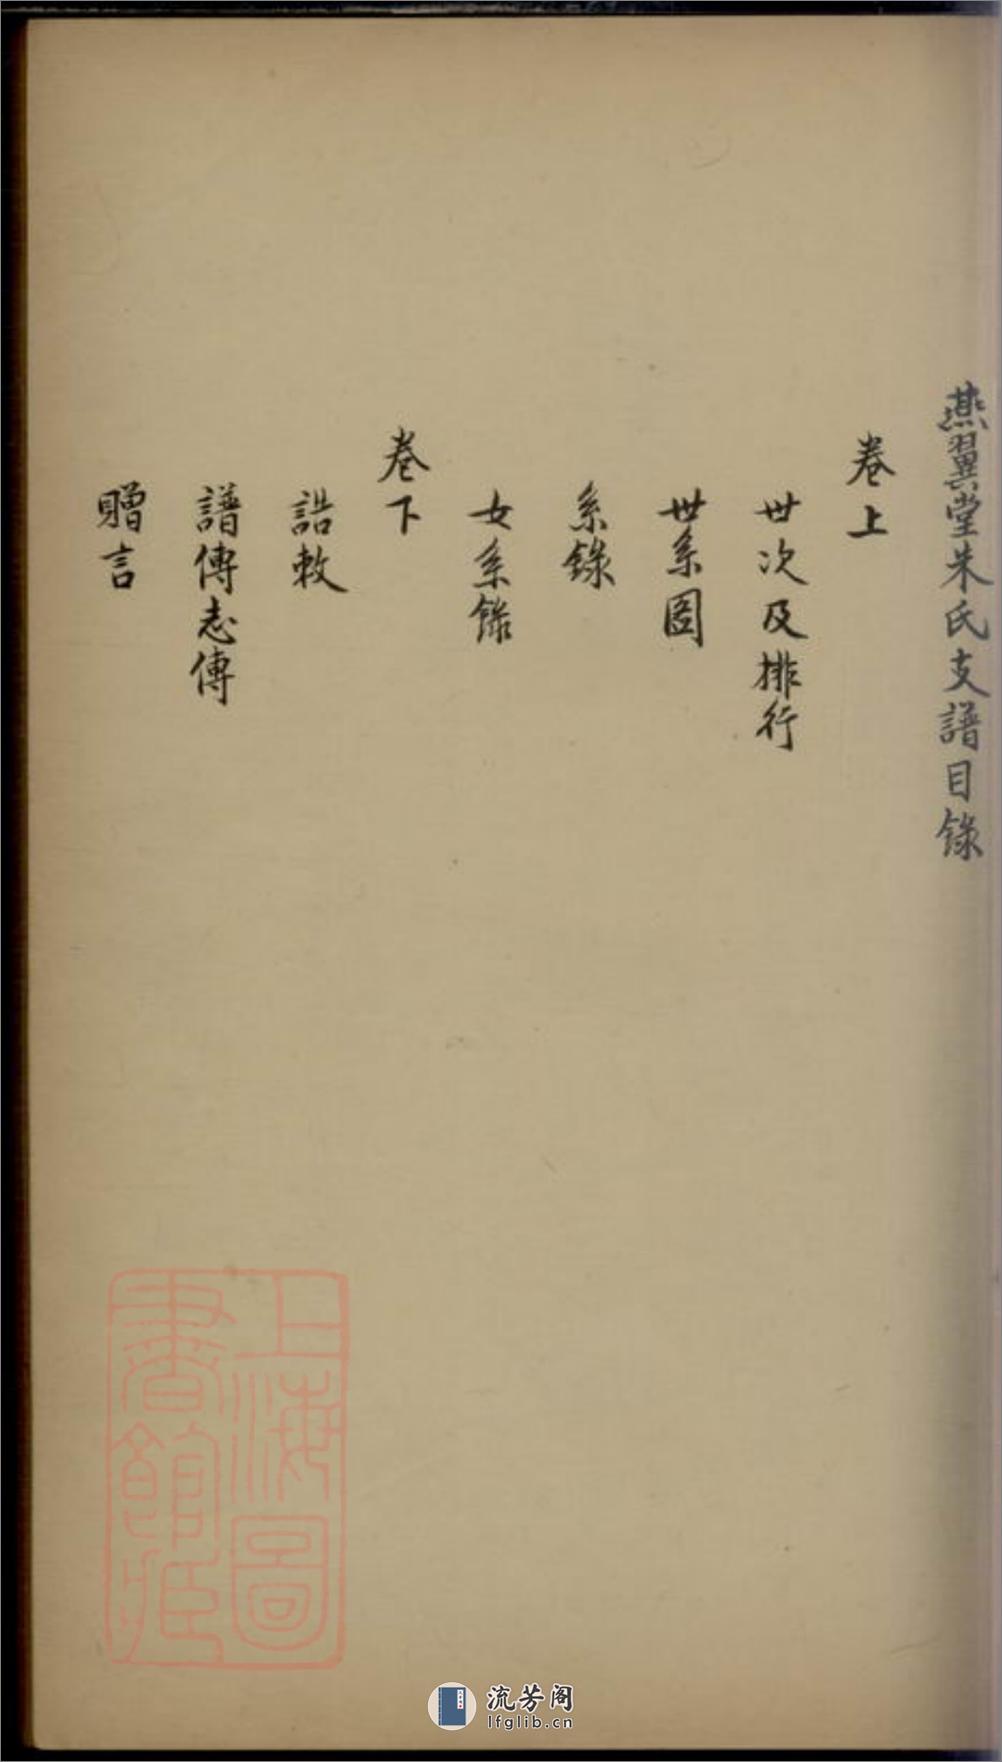 燕翼堂朱氏支譜目錄
卷上
世次及排行
世系圖
系錄
女系錄
卷下
誥敕
譜傳志傳
贈言
上海圖
書館藏
流芳阁
lfglib.cn